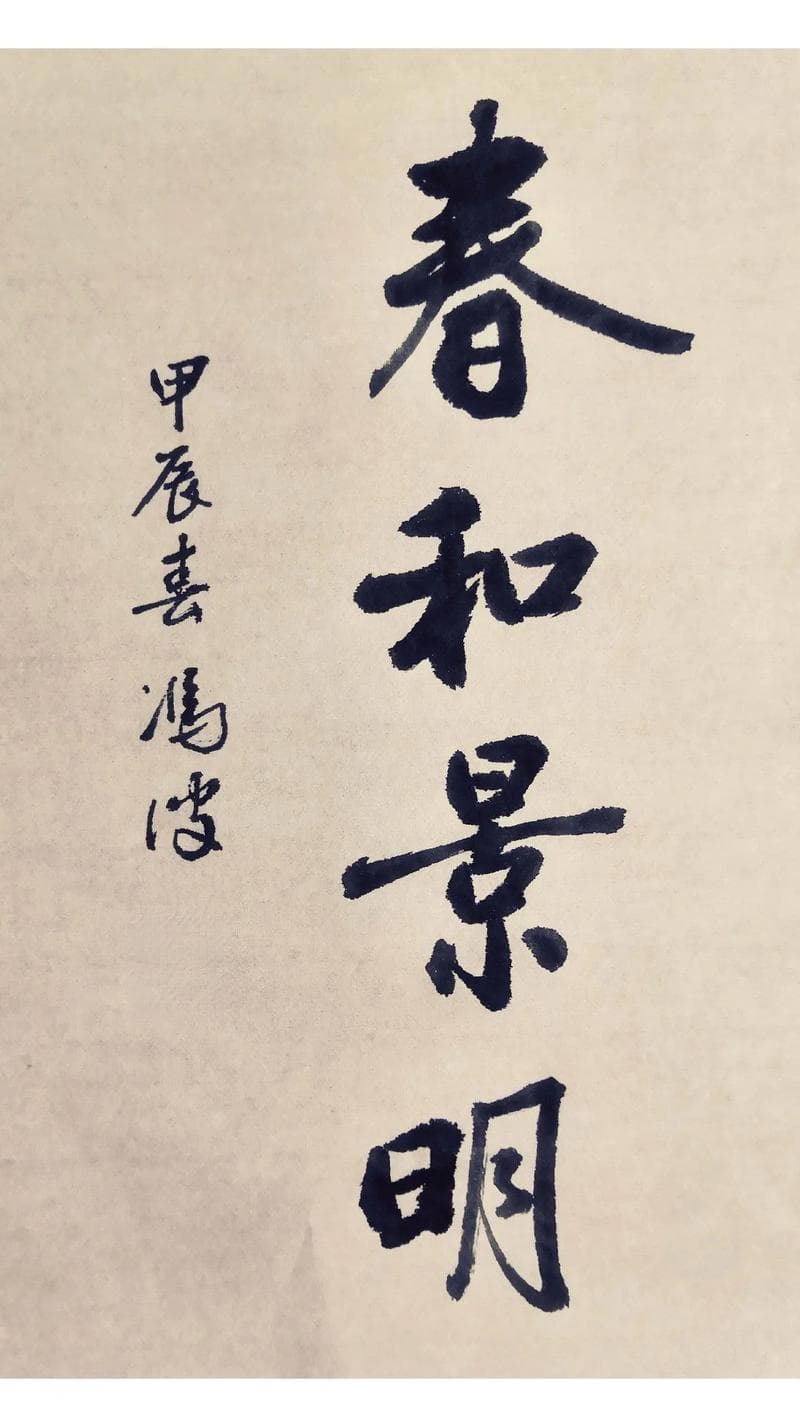 春和景明
甲辰春 馮波